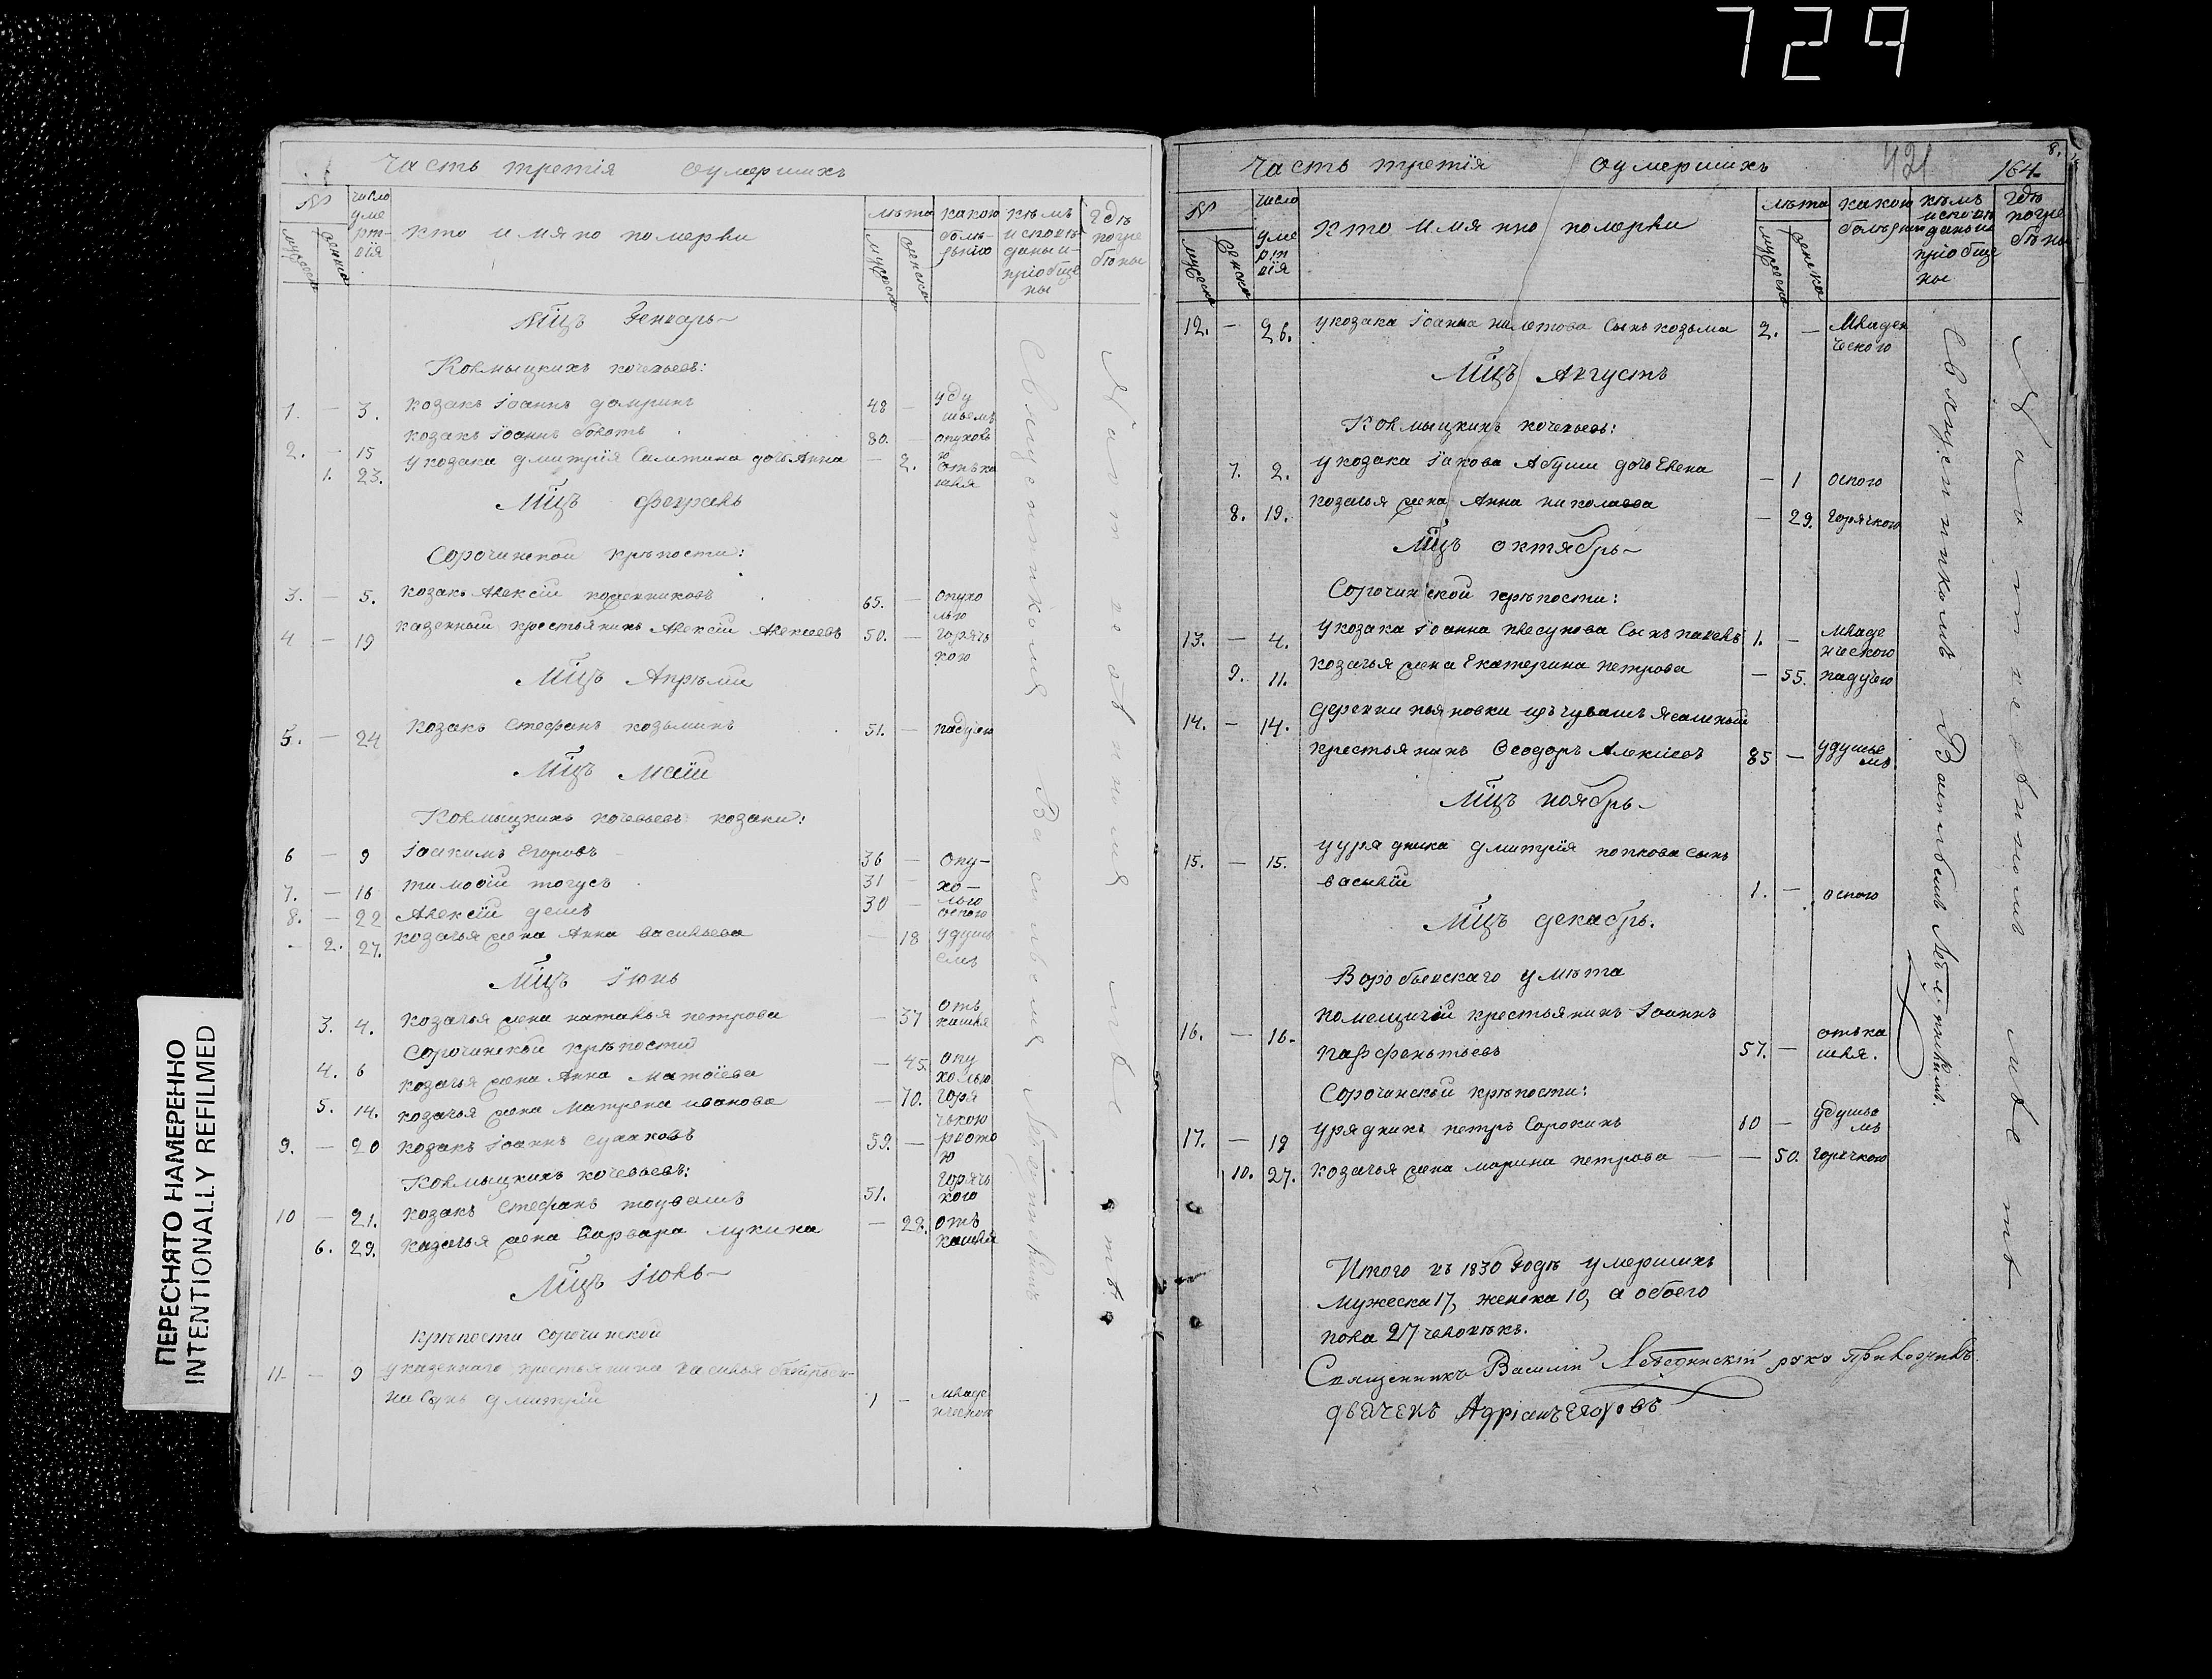 729
ПЕРЕСНЯТО НАМЕРЕННО
INTENTIONALLY REFILMED
Часть третія оумершихъ
№ число умертвія кто имяно померли лѣта какою болѣзнію кѣмъ исповѣданы и пріобщены гдѣ погребены
мужеска женска мужеска женска
Мцъ Генварь
Колмыцкихъ кочевьевъ:
1. — 3. козакъ Іоаннъ домринъ 48 — удушьемъ
2. — 15 козакъ Іоаннъ 80. — опухолью
1. 23. у козака дмитрія Салтина дочь Анна — 2. отъ кашля
Мцъ февраль
Сорочинской крѣпости:
3. — 5. козакъ Алексій 65. — опухолью
4 — 19 казенный крестьянинъ Алексій Алексіевъ 50. — горячкою
Мцъ Апрѣлій
5. — 24 козакъ Стефанъ козьминъ 51. — падучею
Мцъ Маій
Колмыцкихъ кочевьевъ козаки:
6 — 9 Іоакимъ Егоровъ 36 — опу-
7. — 16 тимофій тогусъ 31 — хо-
8. — 22 Алексій 30 — лью оспою
- 2. 27. козачья жена Анна васильева — 18 удушьемъ
Мцъ Іюнь
3. 4. козачья жена наталья петрова — 37 отъ кашля
Сорочинской крѣпости
4. 6 козачья жена Анна Матѳіева — 45. опухолью
5. 14. козачья жена Матрена иванова — 70. горячькою
9. — 20 козакъ Іоаннъ 59. — рвотою
Колмыцкихъ кочевьевъ:
10 — 21. козакъ Стефанъ 51. горячькою
6. 29. козачья жена Варвара лукина — 28. отъ кашля
Мцъ Іюль
крѣпости сорочинской
11. — 9 у казеннаго крестьянина василья
на Сынъ дмитрій 1 — младенческою
Священникомъ Василіемъ
На отведенномъ мѣстѣ
Часть третія оумершихъ 421 8.
164.
№ число умертвія кто имянно померли лѣта какою болѣзнію кѣмъ исповѣданы и пріобщены гдѣ погребены
мужеска женска мужеска женска
12. — 26. у козака Іоанна налетова Сынъ козьма 2. — младенческою
Мцъ Августъ
Колмыцкихъ кочевьевъ:
7. 2. у козака Іакова Абуши дочь Елена — 1 оспою
8. 19. козачья жена Анна николаева — 29. горячкою
Мцъ октябрь
Сорочинской крѣпости:
13. — 4. у козака Іоанна плесунова Сынъ павелъ 1. — младенческою
9. 11. козачья жена Екатерина петрова — 55. падучею
14. — 14. деревни пьяновки изъ чувашъ ясашный
крестьянинъ Ѳеодоръ Алексіевъ 85 — удушьемъ
Мцъ ноябрь
15. — 15. у урядника дмитрія попкова сынъ
василій 1. — оспою
Мцъ декабрь.
Воробьевскаго умѣта
16. — 16. помещичій крестьянинъ Іоаннъ
парфентьевъ 57. — отъ кашля.
Сорочинской крѣпости:
17. — 19 урядникъ петръ Сорокинъ 60 — удушьемъ
10. 27. козачья жена марина петрова — — 50. горячкою
Священникомъ Василіемъ
На отведенномъ мѣстѣ
Итого въ 1830 годѣ умершихъ
мужеска 17, женска 10, а обоего
пола 27 человѣкъ.
Священникъ Василій Лебединскій руку приложилъ.
дьячекъ Адріанъ Егоровъ